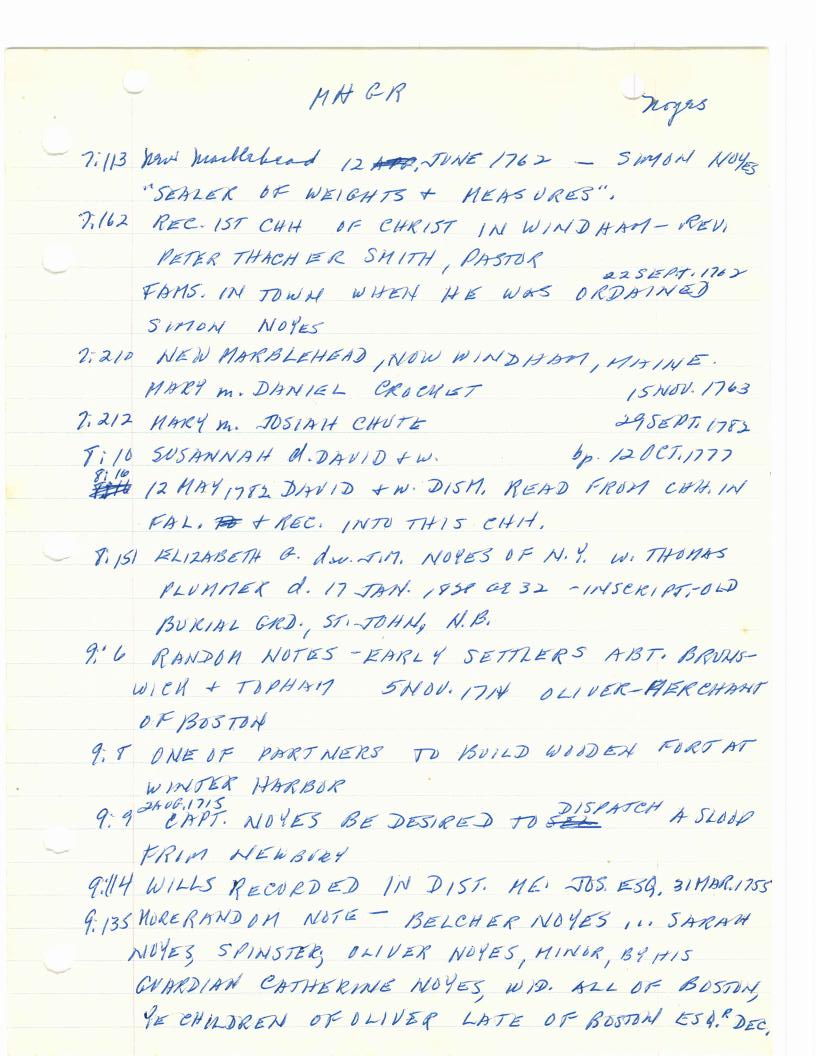 MHGR
Noyes
7:113 New Marblehead 12 JUNE 1762 — SIMON NOYES
"SEALER OF WEIGHTS + MEASURES".
7:162 REC. 1ST CHH OF CHRIST IN WINDHAM — REV.
PETER THACHER SMITH, PASTOR
22 SEPT. 1762
FAMS. IN TOWN WHEN HE WAS ORDAINED
SIMON NOYES
7:210 NEW MARBLEHEAD, NOW WINDHAM, MAINE.
MARY m. DANIEL CROCKET 15 NOV. 1763
7:212 MARY m. JOSIAH CHUTE 29 SEPT. 1782
8:10 SUSANNAH d. DAVID + w. bp. 12 OCT. 1777
8:16 12 MAY, 1782 DAVID + w. DISM. READ FROM CHH. IN
FAL. + REC. INTO THIS CHH.
8:151 ELIZABETH G. d.w. J.M. NOYES OF N.Y. w. THOMAS
PLUMMER d. 17 JAN. 1838 AE 32 - INSCRIPT. - OLD
BURIAL GRD., ST. JOHN, N.B.
9:6 RANDOM NOTES - EARLY SETTLERS ABT. BRUNS-
WICK + TOPHAM 5 NOV. 1714 OLIVER - MERCHANT
OF BOSTON
9:8 ONE OF PARTNERS TO BUILD WOODEN FORT AT
WINTER HARBOR
2 AUG. 1715 DISPATCH
9:9 CAPT. NOYES BE DESIRED TO A SLOOP
FRIM NEWBURY
9:114 WILLS RECORDED IN DIST. ME: JOS. ESQ. 31 MAR. 1755
9:135 MORE RANDOM NOTE — BELCHER NOYES ... SARAH
NOYES, SPINSTER; OLIVER NOYES, MINOR, BY HIS
GUARDIAN CATHERINE NOYES, WID. ALL OF BOSTON,
YE CHILDREN OF OLIVER LATE OF BOSTON ESQ.R DEC.